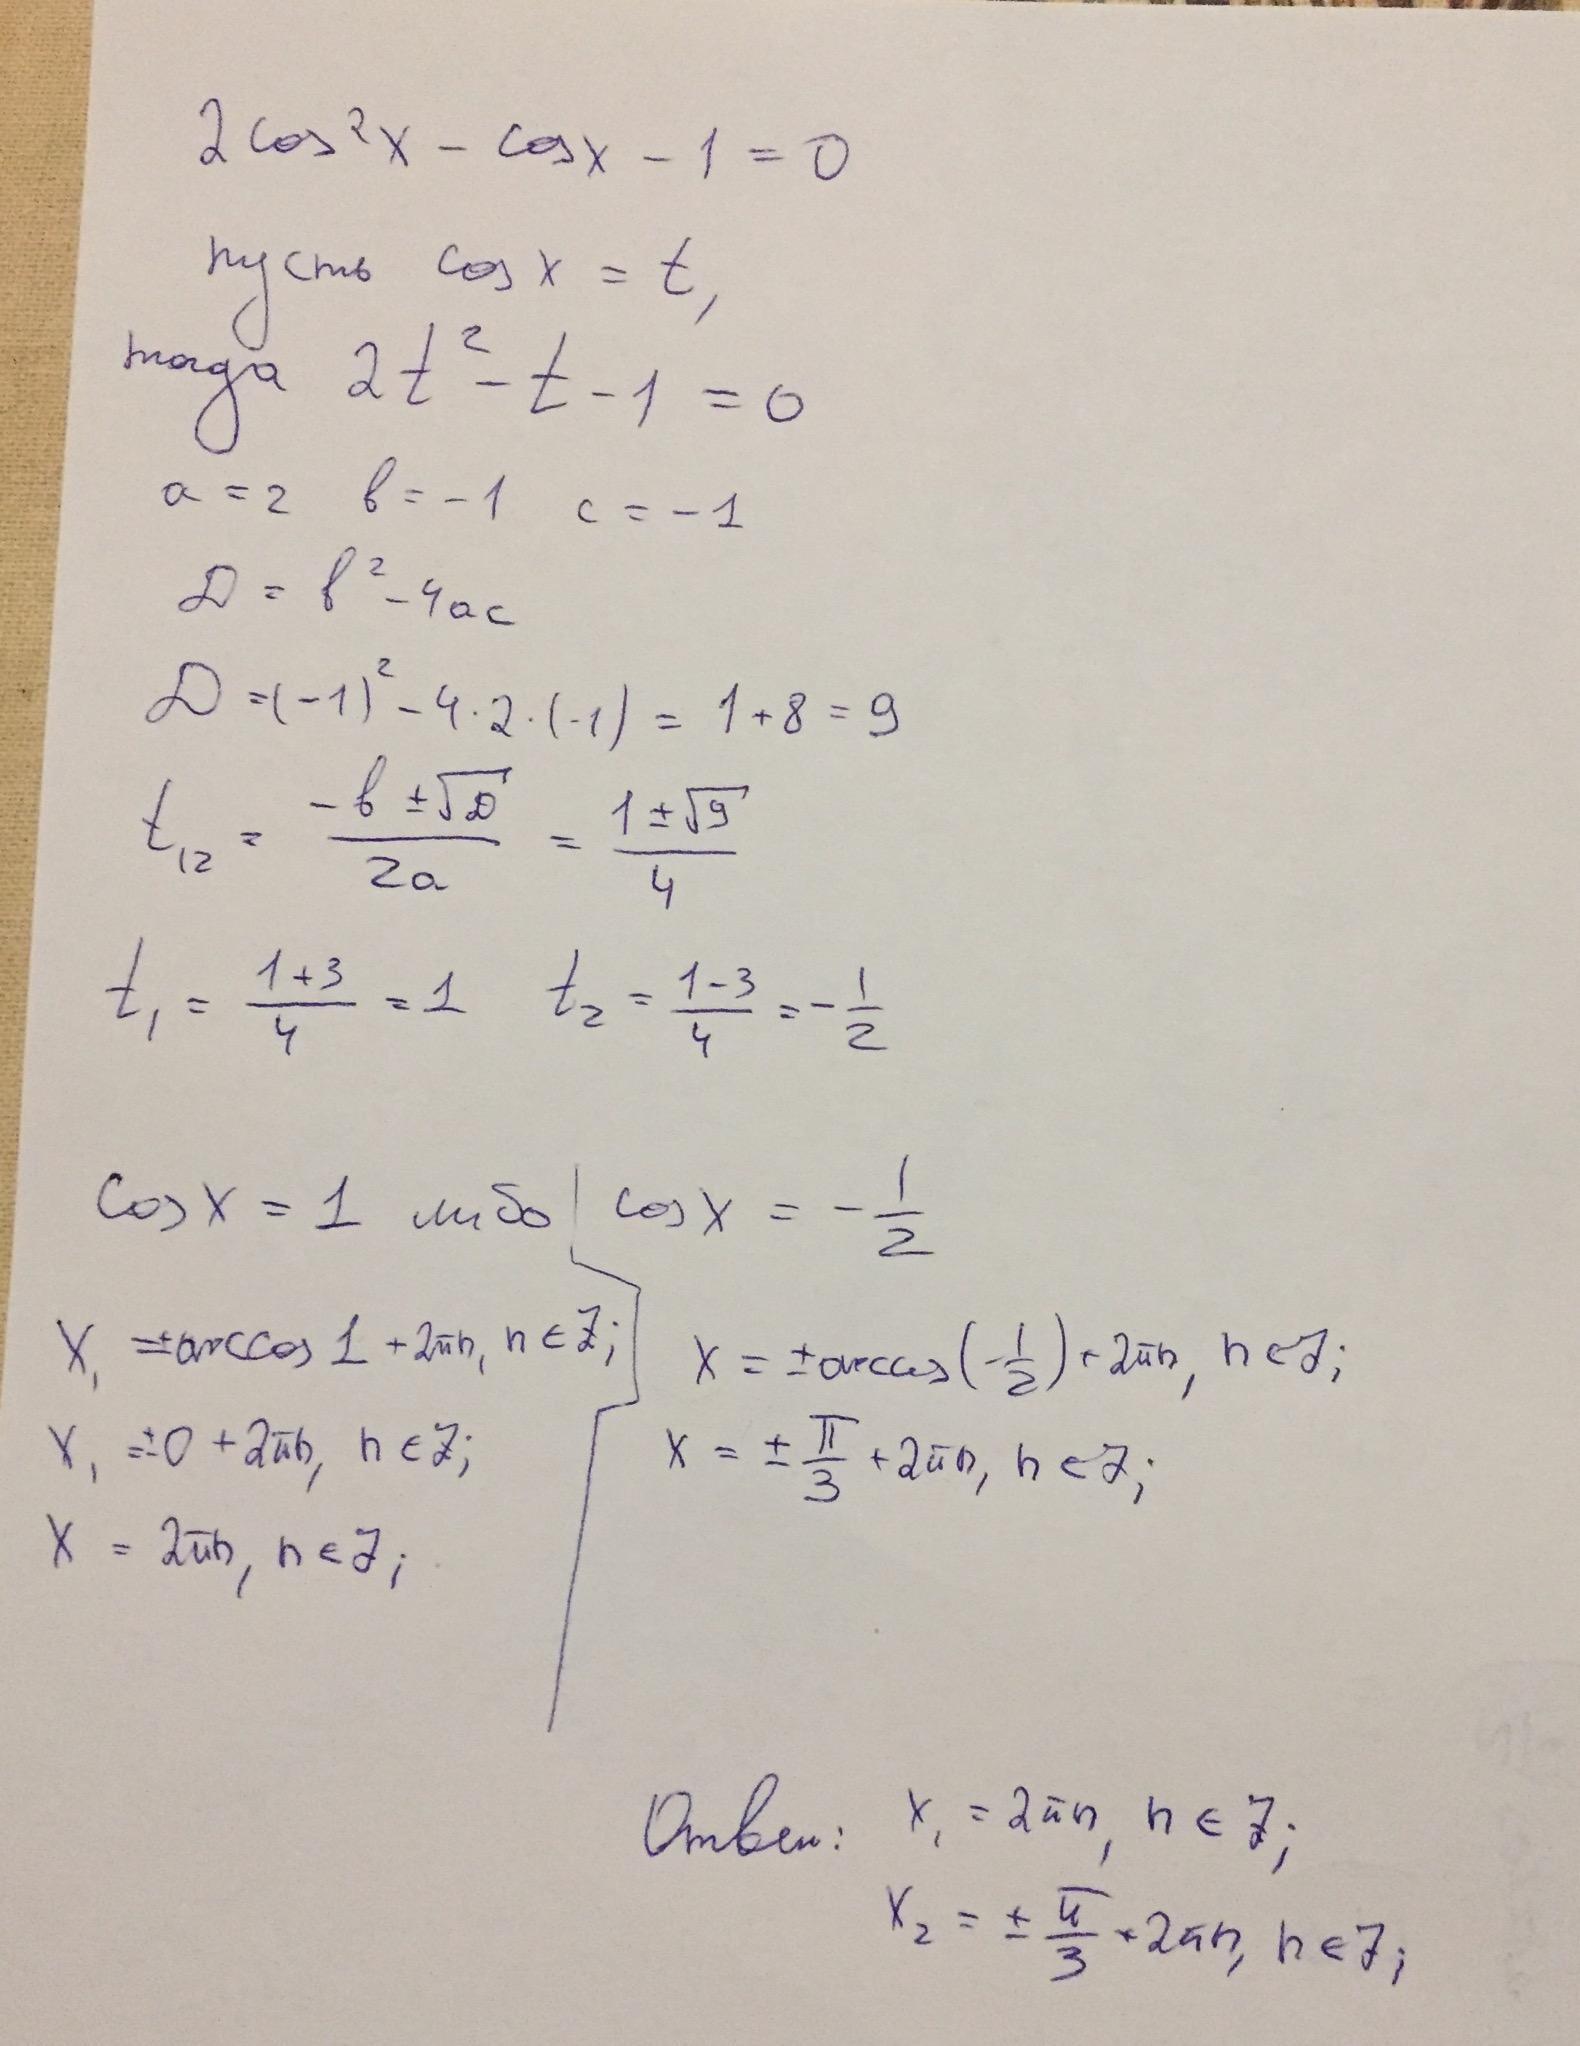 2cos²x - cosx - 1 = 0
пусть cosx = t,
тогда 2t² - t - 1 = 0
a = 2 b = -1 c = -1
D = b² - 4ac
D = (-1)² - 4·2·(-1) = 1+8 = 9
t₁₂ = (-b ± √D)/2a = (1 ± √9)/4
t₁ = (1+3)/4 = 1 t₂ = (1-3)/4 = -1/2
cosx = 1 либо | cosx = -1/2
x₁ = ±arccos 1 + 2πn, n ∈ Z;
x₁ = ±0 + 2πn, n ∈ Z;
x = 2πn, n ∈ Z;
x = ±arccos(-1/2) + 2πn, n ∈ Z;
x = ± π/3 + 2πn, n ∈ Z;
Ответ: x₁ = 2πn, n ∈ Z;
x₂ = ± π/3 + 2πn, n ∈ Z;